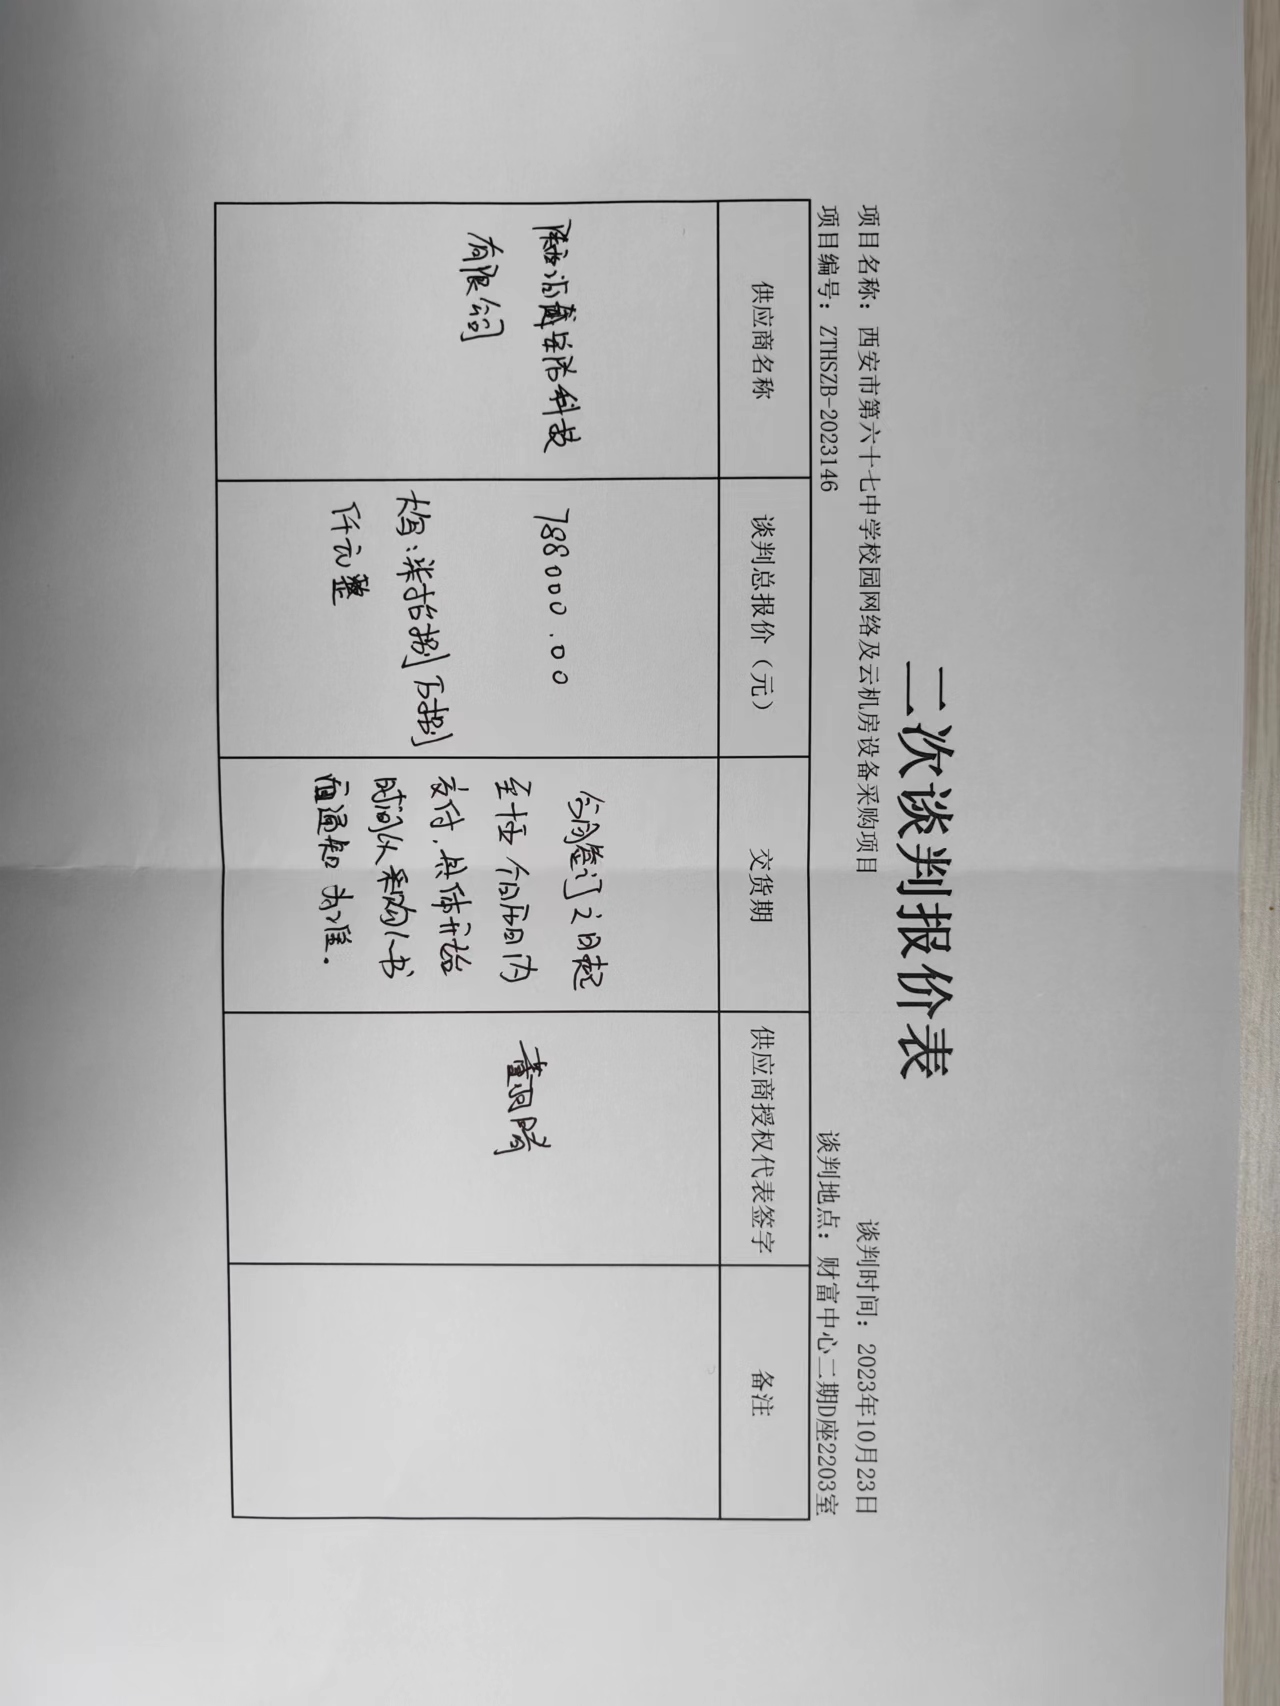 二次谈判报价表
项目名称：西安市第六十七中学校园网络及云机房设备采购项目
谈判时间：2023年10月23日
项目编号：ZTHSZB-2023146
谈判地点：财富中心二期D座2203室
供应商名称
谈判总报价（元）
交货期
供应商授权代表签字
备注
科技
有限公司
788000.00
大写：柒拾捌万捌
仟元整
合同签订之日起
个日内
交付，具体开始
时间以采购人书
面通知为准.
董